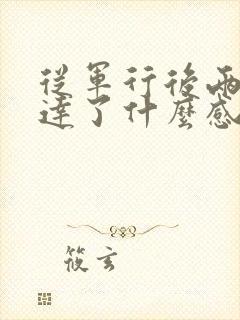 從軍行後兩
達了什麼感
筱玄